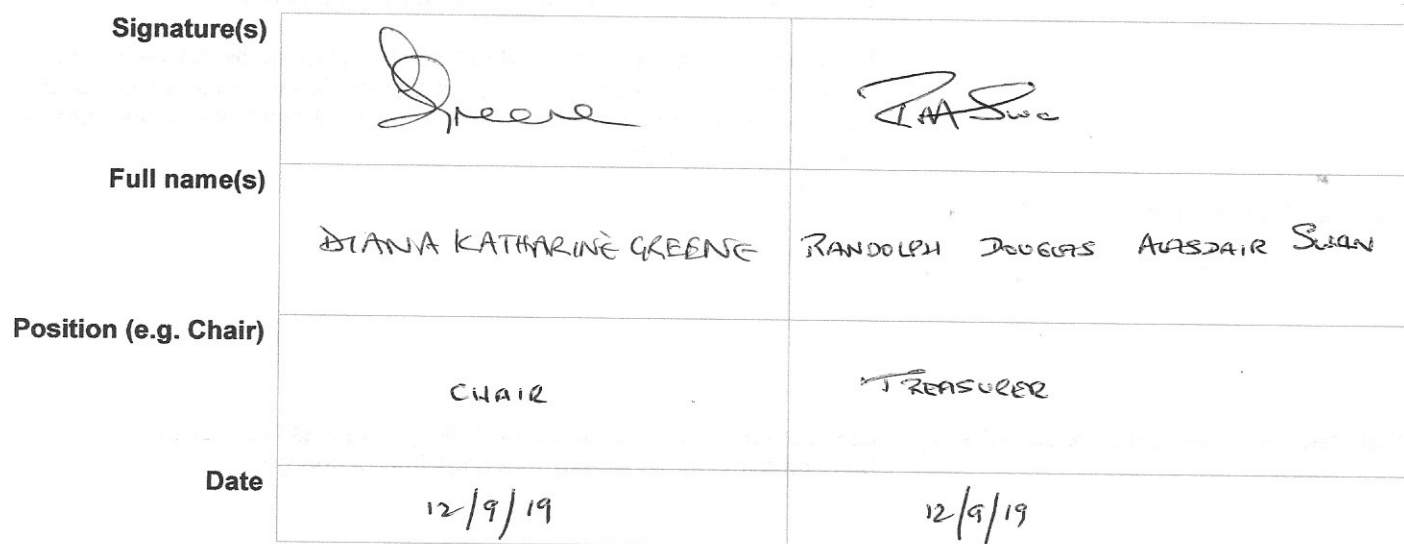 Signature(s) Greene
Full name(s) DIANA KATHARINE GREENE RANDOLPH DOUGLAS ALASDAIR SWAN
Position (e.g. Chair) CHAIR TREASURER
Date 12/9/19 12/9/19